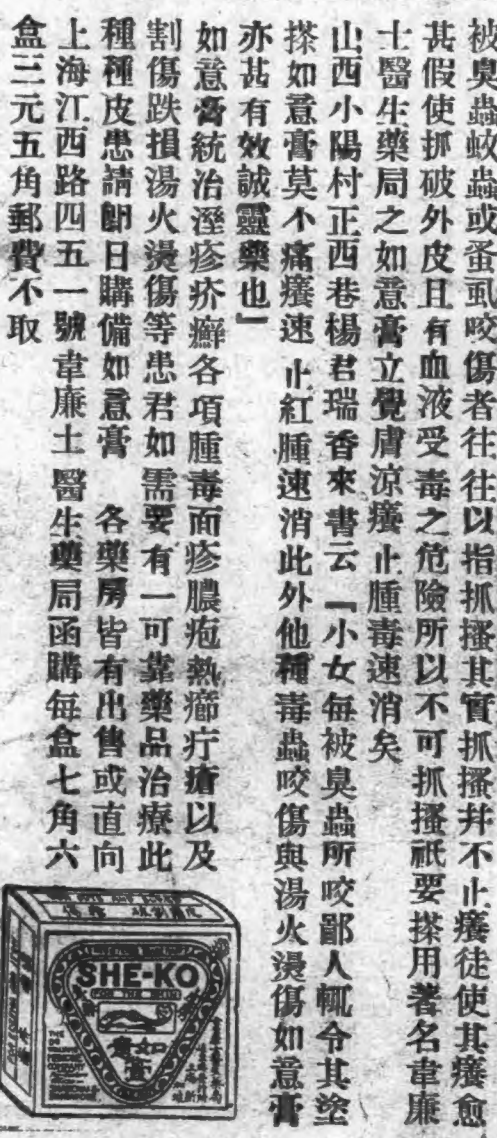 被臭蟲蚊蟲或蚤虱咬傷者往往以指抓搔其實抓搔并不止癢徒使其癢愈
甚假使抓破外皮且有血液受毒之危險所以不可抓搔祇要搽用著名韋廉
士醫生藥局之如意膏立覺膚涼癢止腫毒速消矣
山西小陽村正西巷楊君瑞香來書云『小女每被臭蟲所咬鄙人輒令其塗
搽如意膏莫不痛癢速止紅腫速消此外他種毒蟲咬傷與湯火燙傷如意膏
亦甚有效誠靈藥也』
如意膏統治溼疹疥癬各項腫毒面疹膿疱熱癤疔瘡以及
割傷跌損湯火燙傷等患君如需要有一可靠藥品治療此
種種皮患請即日購備如意膏 各藥房皆有出售或直向
上海江西路四五一號韋廉士醫生藥局函購每盒七角六
盒三元五角郵費不取
SHE-KO
FOR THE SKIN
如意膏